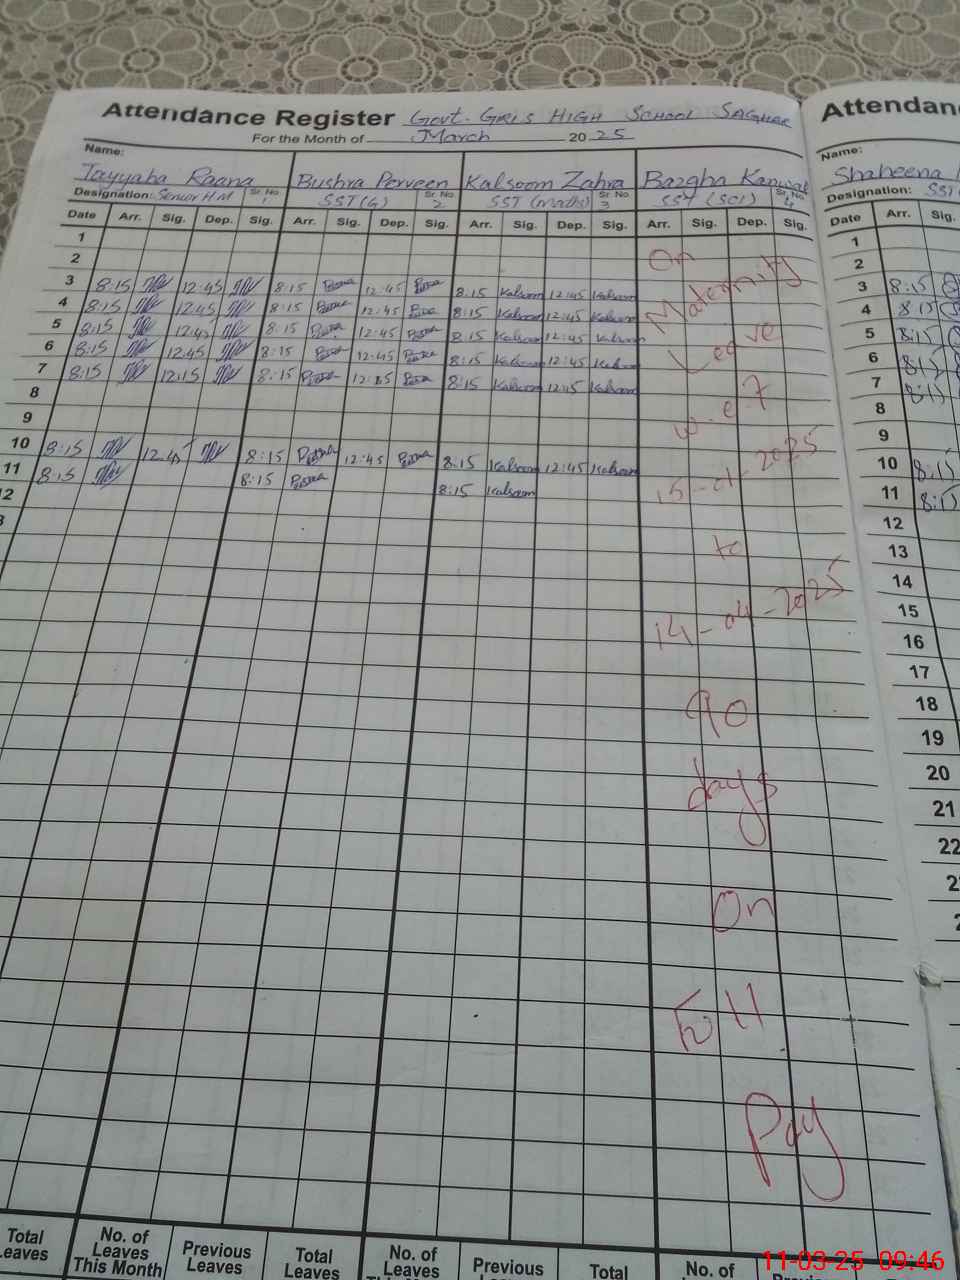 Attendance Register Govt. GRIS HIGH SCHOOL SAGHAR
For the Month of March 20 25
Name:
Tayyaba Raana Bushra Perveen Kalsoom Zahra Bazgha Kanwal
Designation: Senior HM Sr. No 1 SST (G) Sr. No 2 SST (maths) Sr. No 3 SST (SCI) Sr. No 4
Date Arr. Sig. Dep. Sig. Arr. Sig. Dep. Sig. Arr. Sig. Dep. Sig. Arr. Sig. Dep. Sig.
1
2
3 8:15 12:45 8:15 12:45 8:15 Kalsoom 12:45 Kalsoom
4 8:15 12:45 8:15 12:45 8:15 Kalsoom 12:45 Kalsoom
5 8:15 12:45 8:15 12:45 8:15 Kalsoom 12:45 Kalsoom
6 8:15 12:45 8:15 12:45 8:15 Kalsoom 12:45
7 8:15 8:15 8:15 Kalsoom 12:45 Kalsoom
8
9
10 8:15 12:45 8:15 12:45 8:15 Kalsoom 12:45 Kalsoom
11 8:15 8:15 8:15 Kalsoom
12
On
Maternity
Leave
w.e.f
15-01-2025
to
14-04-2025
90
days
On
Full
Pay
Total Leaves No. of Leaves This Month Previous Leaves Total Leaves No. of Leaves This Month Previous Leaves Total No. of
Attendanc
Name:
Shaheena
Designation: SST
Date Arr. Sig.
1
2
3 8:15
4 8:15
5 8:15
6 8:15
7 8:15
8
9
10 8:15
11 8:15
12
13
14
15
16
17
18
19
20
21
22
11-03-25 09:46